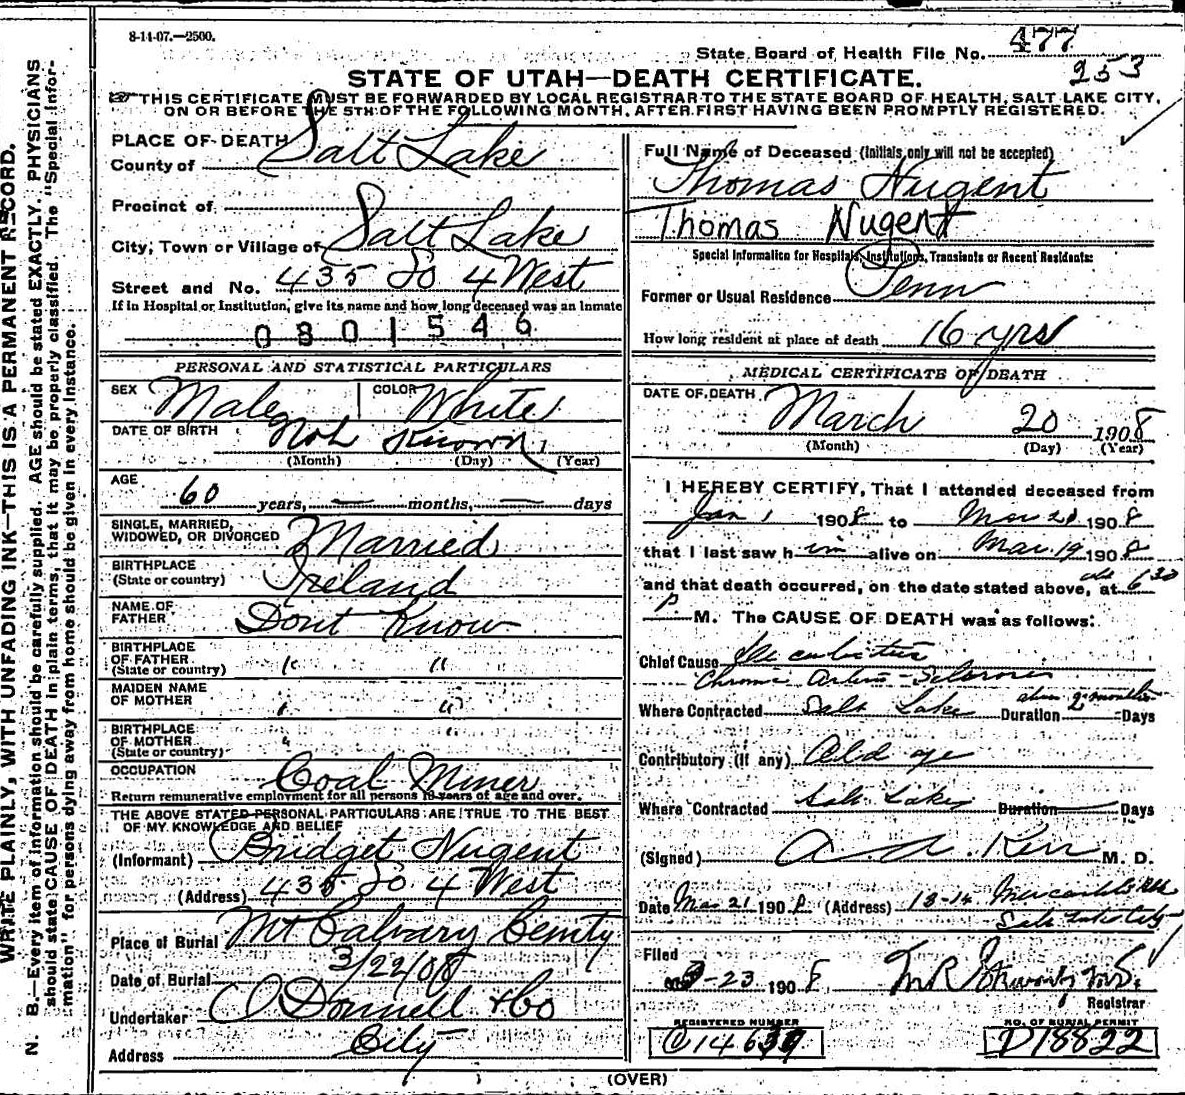 8-11-07.—2500.
State Board of Health File No. 477
253
STATE OF UTAH—DEATH CERTIFICATE.
THIS CERTIFICATE MUST BE FORWARDED BY LOCAL REGISTRAR TO THE STATE BOARD OF HEALTH, SALT LAKE CITY,
ON OR BEFORE THE 5TH OF THE FOLLOWING MONTH, AFTER FIRST HAVING BEEN PROMPTLY REGISTERED.
PLACE OF DEATH
County of Salt Lake
Precinct of
City, Town or Village of Salt Lake
Street and No. 435 So 4 West
If in Hospital or Institution, give its name and how long deceased was an inmate
0801546
PERSONAL AND STATISTICAL PARTICULARS
SEX Male COLOR White
DATE OF BIRTH Not Known 1
(Month) (Day) (Year)
AGE
60 years, — months, — days
SINGLE, MARRIED,
WIDOWED, OR DIVORCED Married
BIRTHPLACE
(State or country) Ireland
NAME OF
FATHER Dont Know
BIRTHPLACE
OF FATHER
(State or country) " "
MAIDEN NAME
OF MOTHER " "
BIRTHPLACE
OF MOTHER
(State or country) " "
OCCUPATION Coal Miner
Return remunerative employment for all persons 10 years of age and over.
THE ABOVE STATED PERSONAL PARTICULARS ARE TRUE TO THE BEST
OF MY KNOWLEDGE AND BELIEF
(Informant) Bridget Nugent
(Address) 435 So 4 West
Place of Burial Mt Calvary Cemty
Date of Burial 3/22/08
Undertaker O'Donnell & Co
Address City
Full Name of Deceased (Initials only will not be accepted)
Thomas Nugent
Thomas Nugent
Special Information for Hospitals, Institutions, Transients or Recent Residents:
Former or Usual Residence Penn
How long resident at place of death 16 yrs
MEDICAL CERTIFICATE OF DEATH
DATE OF DEATH
March 20 1908
(Month) (Day) (Year)
I HEREBY CERTIFY, That I attended deceased from
Jan 1 1908 to Mar 20 1908
that I last saw him alive on Mar 19 1908
and that death occurred, on the date stated above, at 6 30
P M. The CAUSE OF DEATH was as follows:
Chief Cause Decubitus
Chronic Arterio-Sclerosis
Where Contracted Salt Lake Duration 2 months Days
Contributory (if any) Old age
Where Contracted Salt Lake Duration Days
(Signed) A. A. Kerr M. D.
Date Mar 21 1908 (Address) 13-14 Mercantile
Salt Lake City
Filed
3-23 1908
Registrar
REGISTERED NUMBER
NO. OF BURIAL PERMIT
D18822
(OVER)
WRITE PLAINLY, WITH UNFADING INK—THIS IS A PERMANENT RECORD.
N. B.—Every item of information should be carefully supplied. AGE should be stated EXACTLY. PHYSICIANS
should state CAUSE OF DEATH in plain terms, that it may be properly classified. The "Special Infor-
mation" for persons dying away from home should be given in every instance.